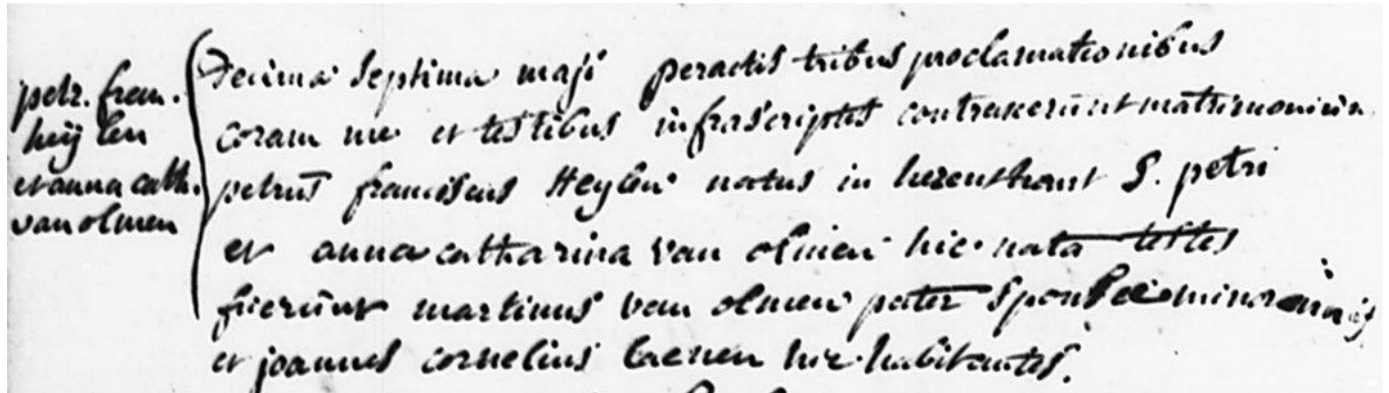 petr. fran.
heijlen
et anna cath.
van olmen
Decima septima maji peractis tribus proclamationibus
coram me et testibus infrascriptis contraxerunt matrimonium
petrus franciscus Heylen natus in herenthout S. petri
et anna catharina van olmen hic nata testes
fuerunt martinus van olmen pater sponsae
et joannes cornelius laenen hic habitantes.